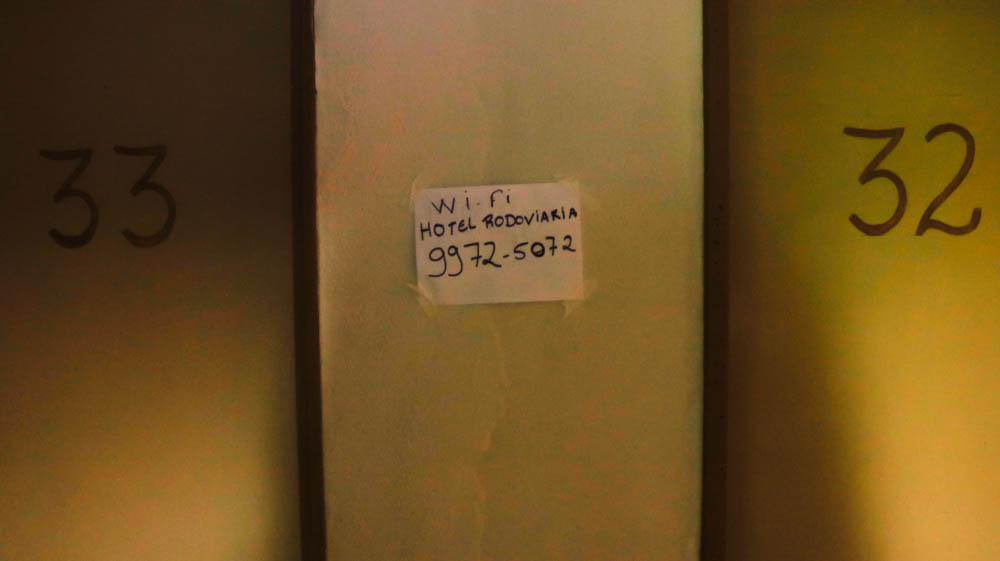 33
Wi-Fi
HOTEL RODOVIARIA
9972-5072
32